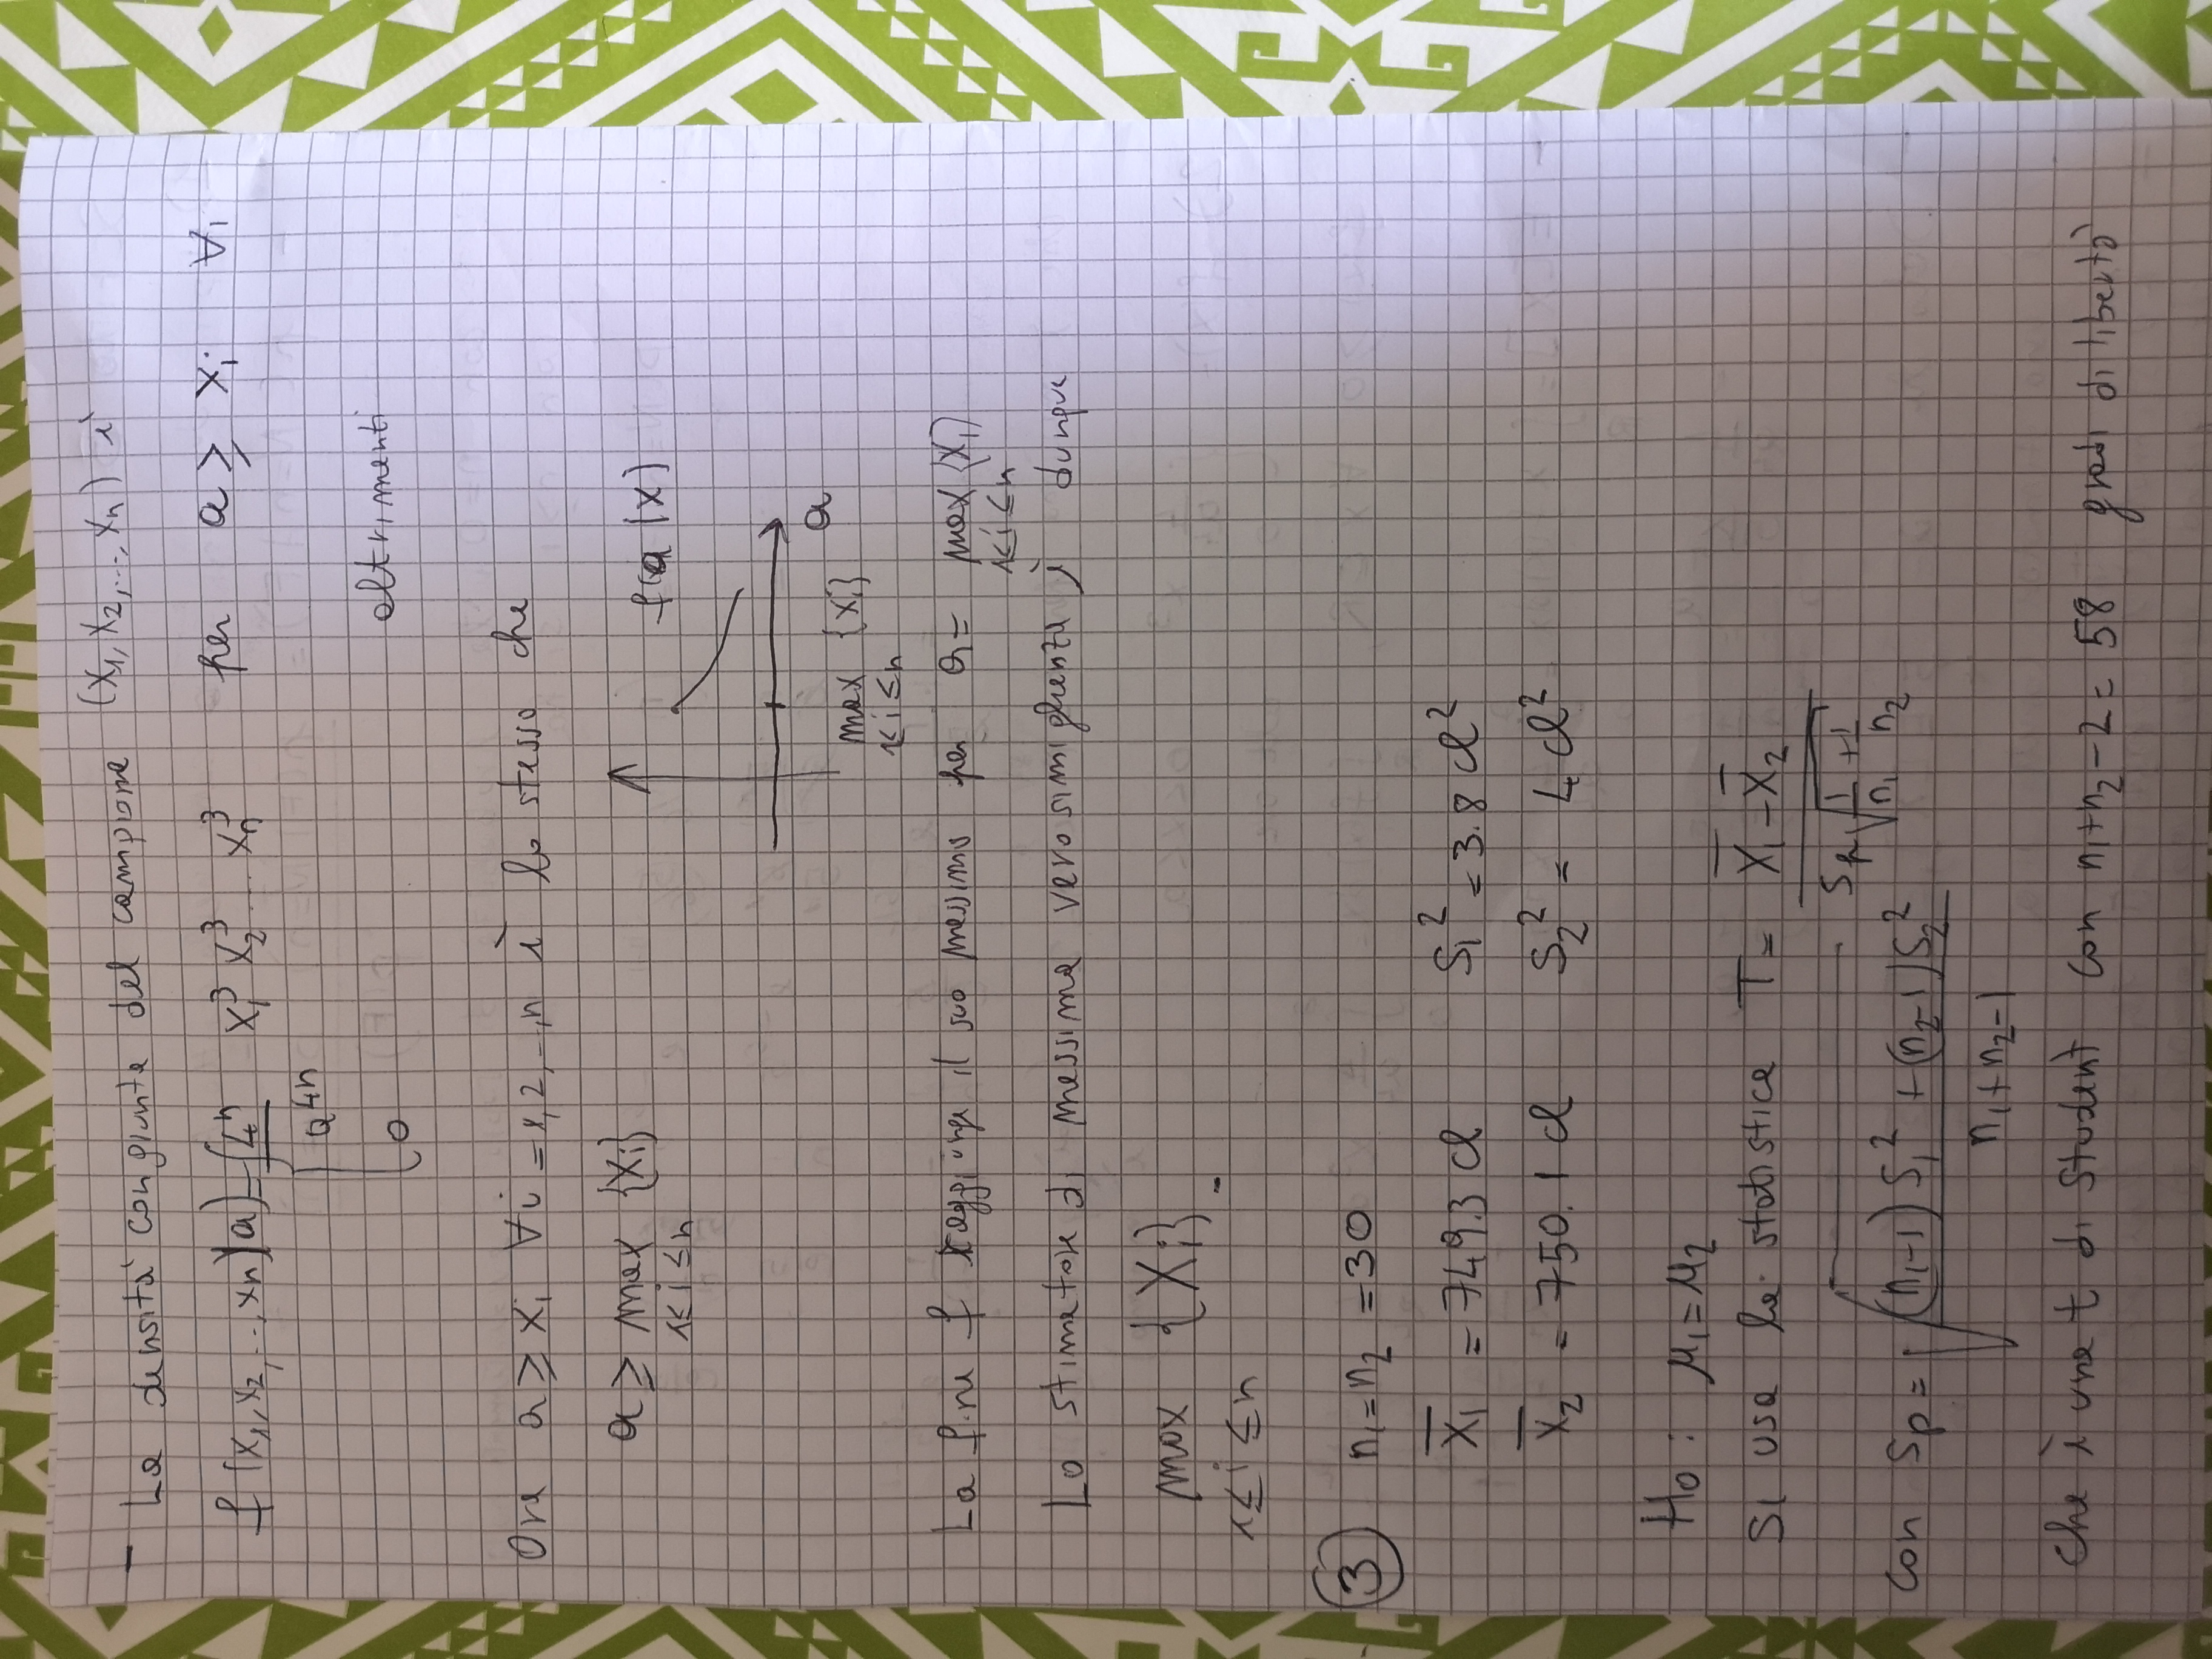 - La densità congiunta del campione (X1, X2, ..., Xn) è
f (x1, x2, ..., xn | a) = { 4^n / a^4n x1^3 x2^3 ... xn^3 per a ≥ xi ∀i
0 altrimenti
Ora a ≥ xi ∀i = 1, 2, .., n è lo stesso che
a ≥ max {xi}
1≤i≤n
f(a|x)
a
max {xi}
1≤i≤n
La f.ne f raggiunge il suo massimo per a = max {xi}
1≤i≤n
Lo stimatore di massima verosimiglianza è dunque
max {Xi}.
1≤i≤n
3 n1 = n2 = 30
X̄1 = 749.3 cl S1^2 = 3.8 cl^2
X̄2 = 750.1 cl S2^2 = 4 cl^2
H0 : μ1 = μ2
Si usa la statistica T = (X̄1 - X̄2) / (Sp √(1/n1 + 1/n2))
con Sp = √(((n1-1) S1^2 + (n2-1) S2^2) / (n1+n2-1))
che è una t di Student con n1+n2-2 = 58 gradi di libertà